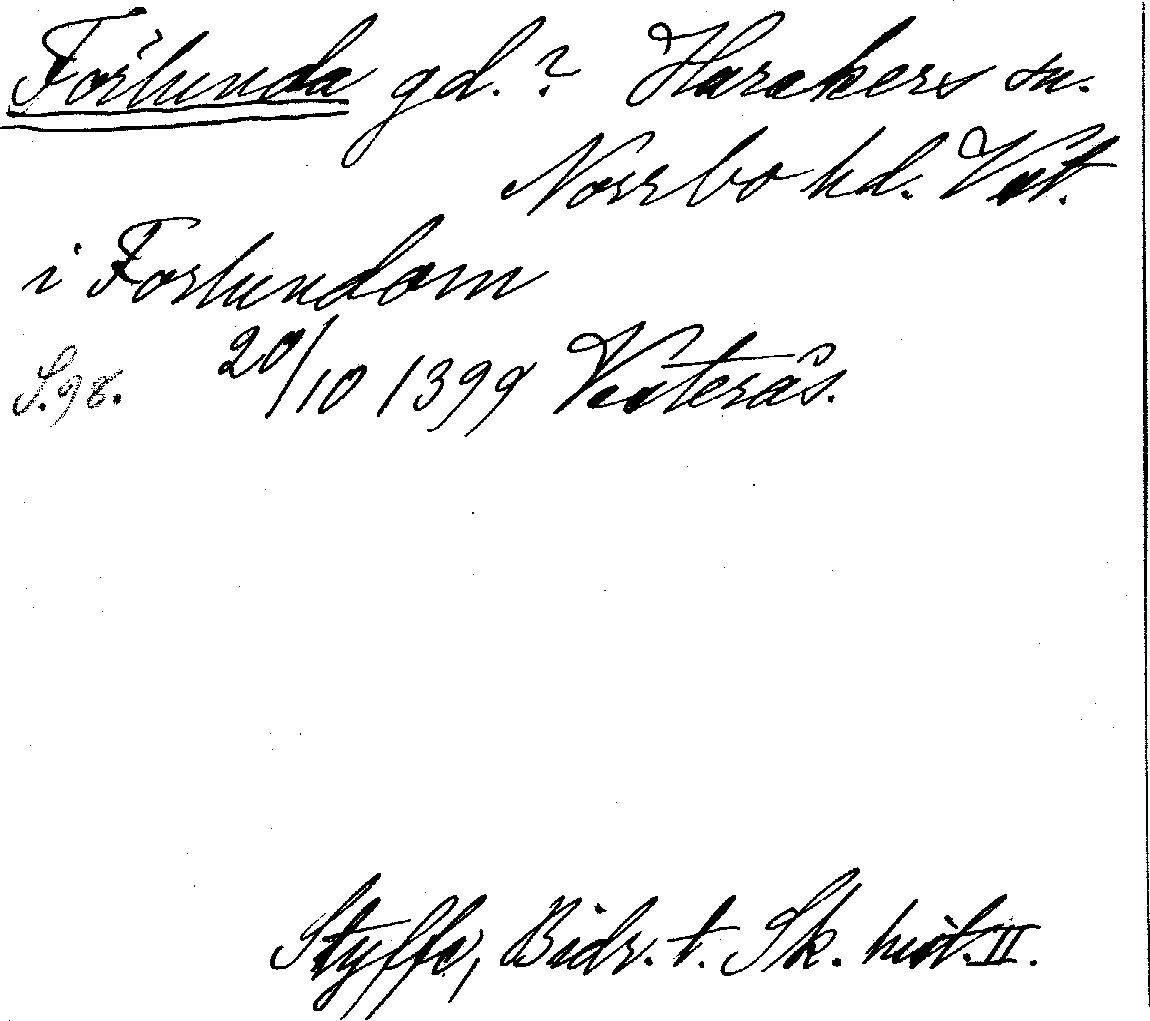 Förlunda gd.? Harakers sn.
Norrbo hd. Vstm.
i Forlundom
S.98. 20/10 1399 Västerås.
Styffe, Bidr. t. Sk. hist. II.